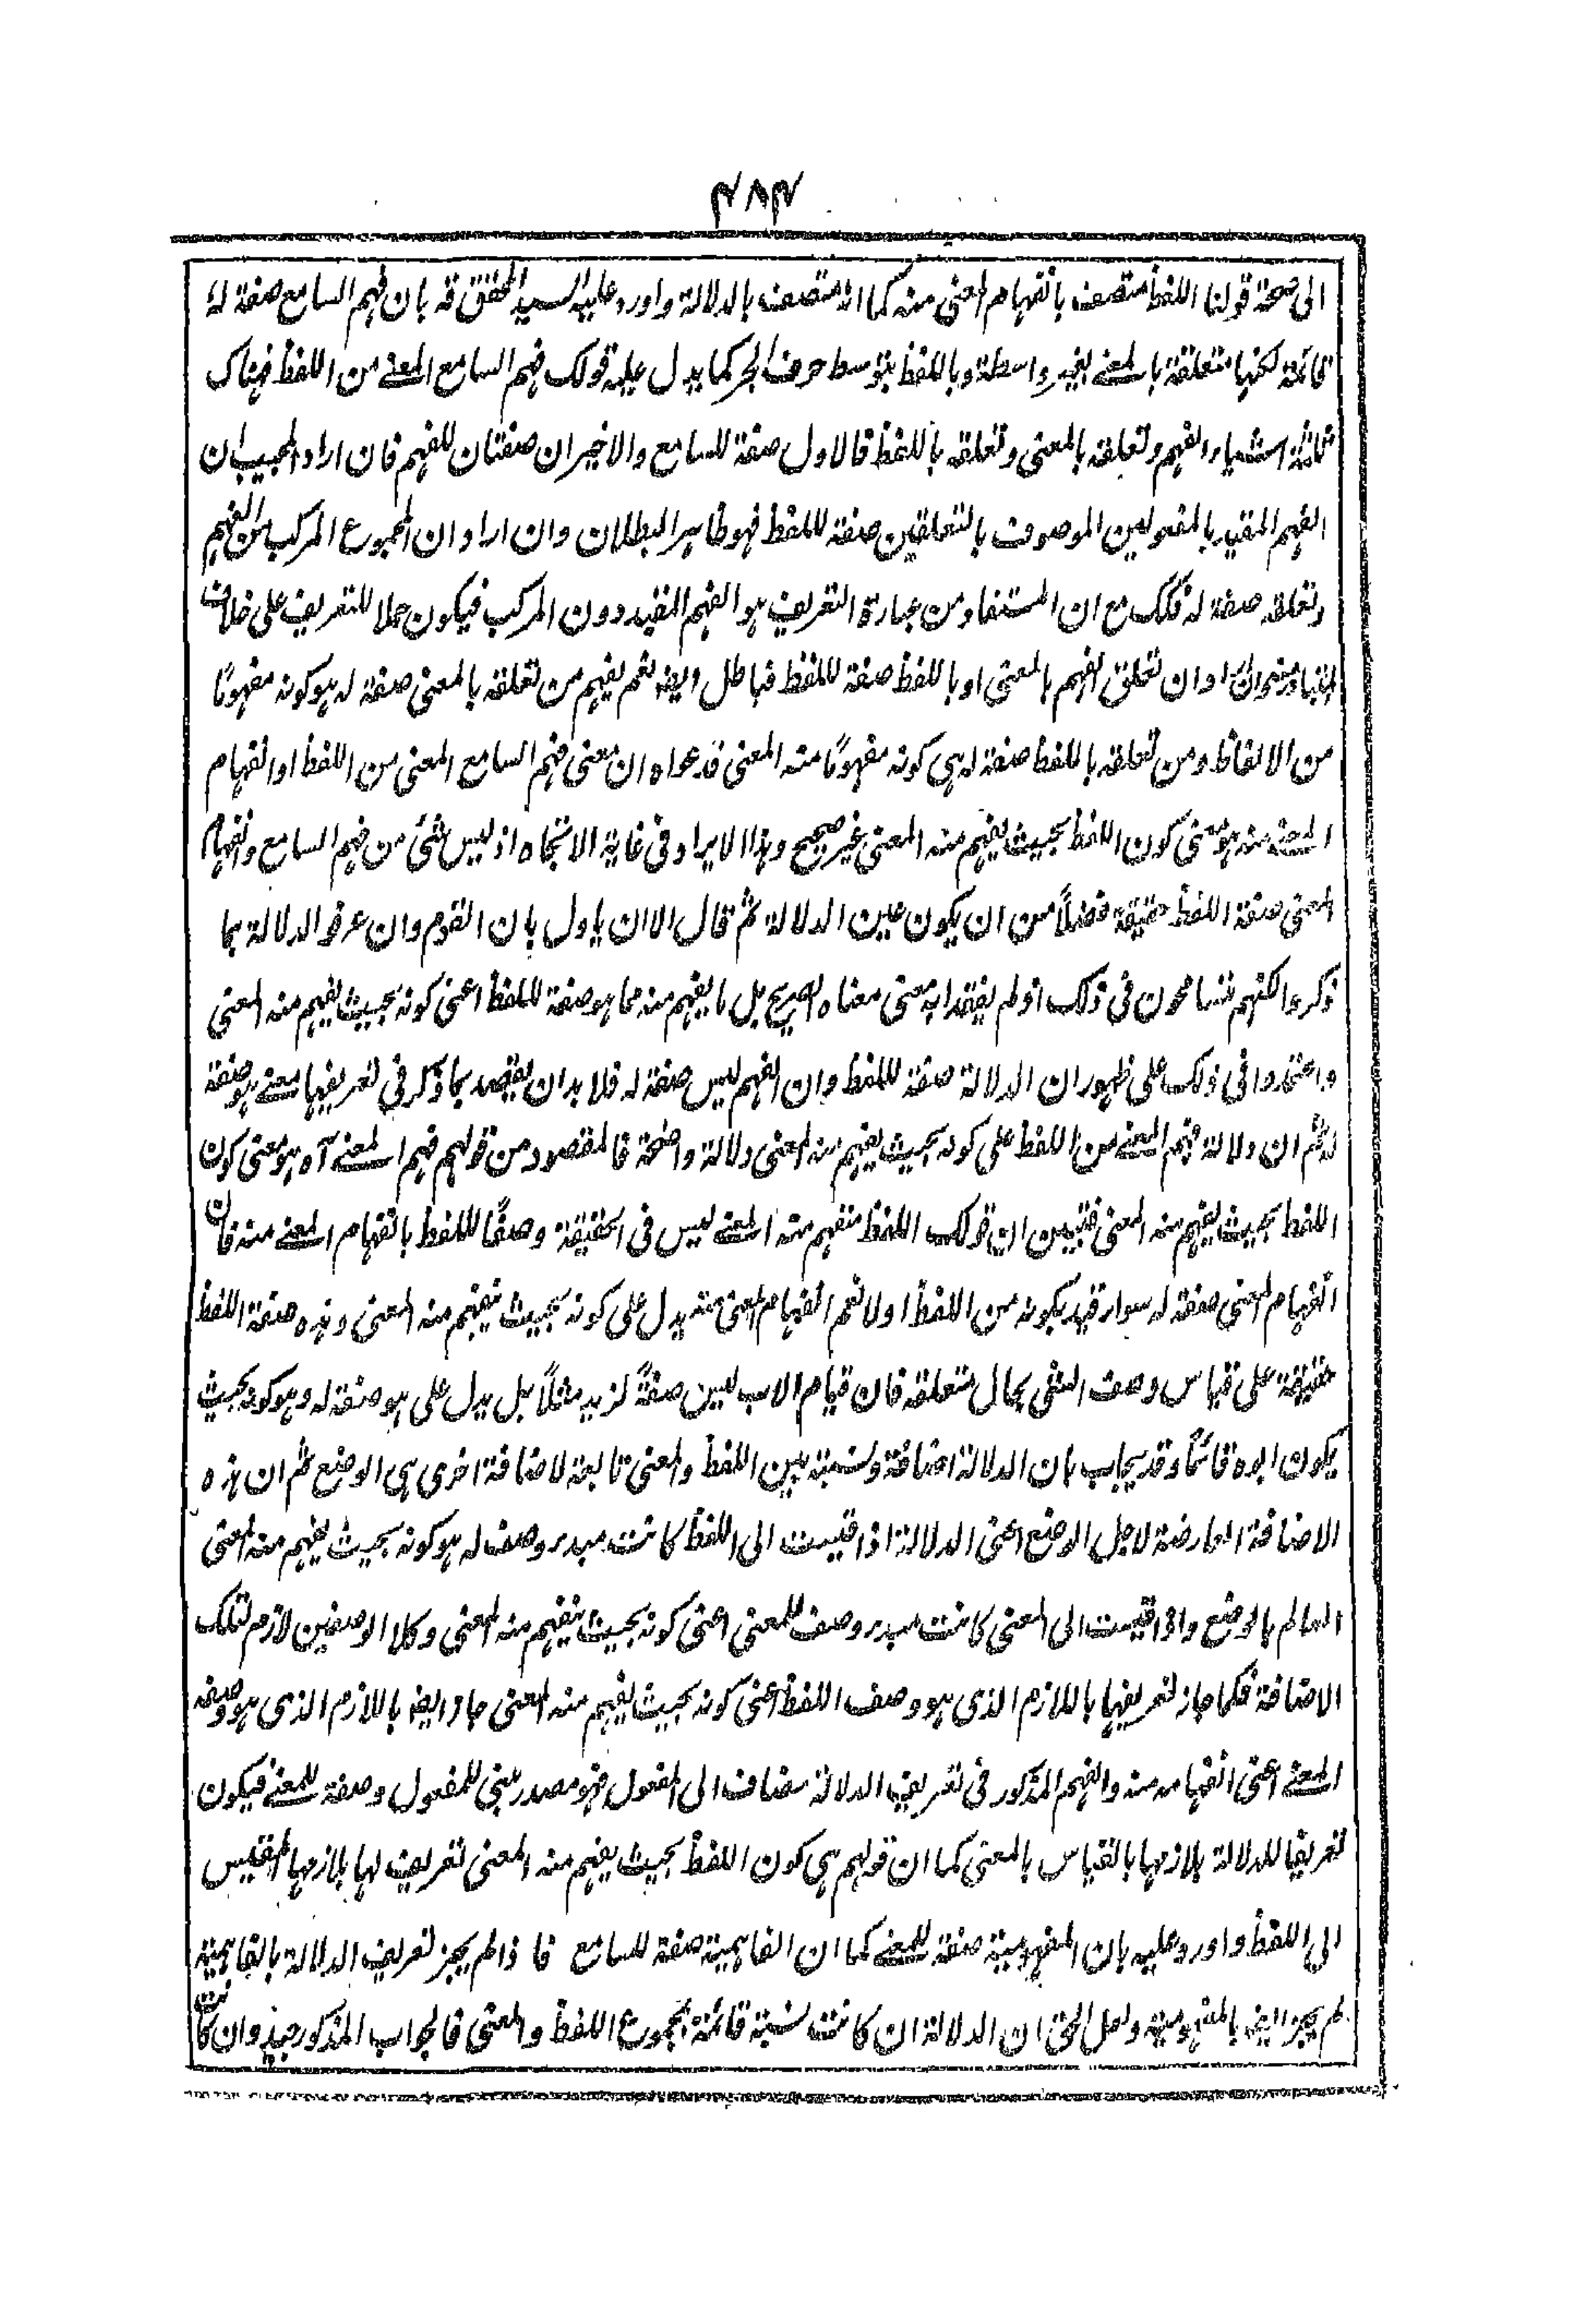 ٤٨٣
الى صحة قولنا اللفظ متصف بانفهام المعنى منه كما انه متصف بالدلالة واورد عليه السيد المحقق قه بان فهم السامع صفة له
قائمة لكنها متعلقة بالمعنے بغير واسطة وباللفظ بتوسط حرف الجر كما يدل عليه قولك فهم السامع المعنے من اللفظ فهناك
ثلثة اشياء الفهم وتعلقه بالمعنى وتعلقه باللفظ فالاول صفة للسامع والاخيران صفتان للفهم فان اراد المجيب ان
الفهم المقيد بالمفعولين الموصوف بالتعلقين صفة للفظ فهو ظاهر البطلان وان اراد ان المجموع المركب من الفهم
وتعلقه صفة له فكك مع ان المستفاد من عبارة التعريف هو الفهم المقيد دون المركب فيكون حملا للتعريف على خلاف
المتبادر منه وان اراد ان تعلق الفهم بالمعنى او باللفظ صفة للفظ فباطل وايضا نعم يفهم من تعلقه بالمعنى صفة له هو كونه مفهومًا
من الالفاظ ومن تعلقه باللفظ صفة له هى كونه مفهومًا منه المعنى فدعواه ان معنى فهم السامع المعنى من اللفظ او انفهام
المعنے منه هو معنى كون اللفظ بحيث يفهم منه المعنى غير صحيح وهذا الايراد فى غاية الاتجاه اذ ليس شئ من فهم السامع وانفهام
المعنى صفة اللفظ حقيقة فضلًا من ان يكون عين الدلالة ثم قال الا ان ياول بان القوم وان عرفوا الدلالة بما
ذكروا لكنهم تسامحون فى ذلك اذ لم يقصدا به معنى معناه الصريح بل ما يفهم منه مما هو صفة للفظ اعنى كونه بحيث يفهم منه المعنى
واعتمدوا فى ذلك على ظهور ان الدلالة صفة للفظ وان الفهم ليس صفة له فلابد ان يقصد بما ذكر فى تعريفها معنے هو صفة
له ثم ان دلالة فهم المعنے من اللفظ على كونه بحيث يفهم منه المعنى دلالة واضحة فالمقصود من قولهم فهم المعنے آه هو معنى كون
اللفظ بحيث يفهم منه المعنى فتبين ان قولك اللفظ منفهم منه المعنے ليس فى الحقيقة وصفًا للفظ بانفهام المعنے منه فان
انفهام المعنى صفة له سواء قيد بكونه من اللفظ اولا نعم انفهام المعنى منه يدل على كونه بحيث ينفهم منه المعنى وهذه صفة اللفظ
حقيقة على قياس وصف الشئ بحال متعلقه فان قيام الاب ليس صفةً لزيد مثلًا بل يدل على هو صفة له وهو كونه بحيث
يكون ابوه قائمًا وقد يجاب بان الدلالة اضافة ونسبة بين اللفظ والمعنى تابعة لاضافة اخرى هى الوضع ثم ان هذه
الاضافة العارضة لاجل الوضع اعنى الدلالة اذا قيست الى اللفظ كانت مبدء وصف له هو كونه بحيث يفهم منه المعنى
العالم بالوضع واذا قيست الى المعنى كانت مبدء وصف للمعنى اعنى كونه بحيث ينفهم منه المعنى وكلا الوصفين لازم لتلك
الاضافة فكما جاز تعريفها باللازم الذى هو وصف اللفظ اعنى كونه بحيث يفهم منه المعنى جاز ايضا باللازم الذى هو وصف
المعنے اعنى انفهامه منه والفهم المذكور فى تعريف الدلالة مضاف الى المفعول فهو مصدر مبنى للمفعول وصفة للمعنے فيكون
تعريفا للدلالة بلازمها بالقياس بالمعنى كما ان قولهم هى كون اللفظ بحيث يفهم منه المعنى تعريف لها بلازمها المقيس
الى اللفظ واورد عليه بان المفهومية صفة للمعنے كما ان الفاهمية صفة للسامع فاذا لم يجز تعريف الدلالة بالفاهمية
لم يجز ايضا بالمفهومية ولعل الحق ان الدلالة ان كانت نسبة قائمة بمجموع اللفظ والمعنى فالجواب المذكور جيد وان كانت